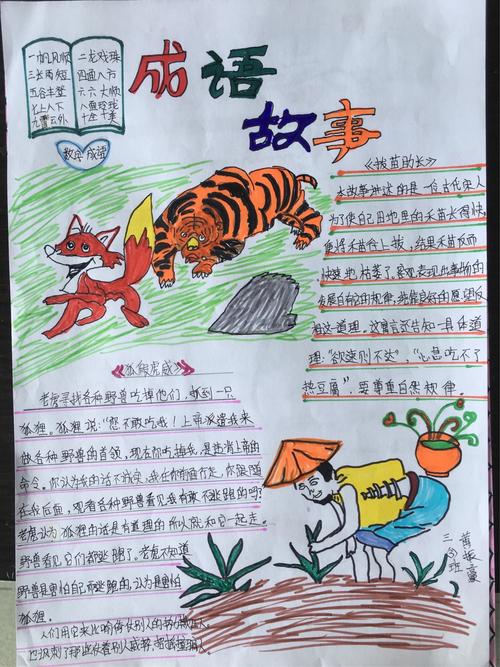 一帆风顺 二龙戏珠
三长两短 四通八方
五谷丰登 六六大顺
七上八下 八面玲珑
九霄云外 十全十美
数字成语
成语
故事
《拔苗助长》
本故事讲述的是一位古代宋人
为了使自己田地里的禾苗长得快,
便将禾苗往上拔,结果禾苗反而
快速地枯萎了,客观表现出事物的
发展自有它的规律,纯靠良好的愿望
道理。这寓言还告知一具体道
理:“欲速则不达”,“心急吃不了
热豆腐”,要尊重自然规律。
《狐假虎威》
老虎寻找各种野兽吃掉他们,抓到一只
狐狸。狐狸说:“您不敢吃我!上帝派遣我来
做各种野兽的首领,现在你吃掉我,是违背上帝的
命令。你认为我的话不诚实,我在你前面行走,你跟随
在我后面,观看各种野兽看见我有敢不逃跑的吗?
老虎认为狐狸的话是有道理的所以就和它一起走。
野兽看见它们都逃跑了。老虎不知道
野兽是害怕自己而逃跑的,认为是害怕
狐狸。
人们用它来比喻倚仗别人的势力
也讽刺了那些仗着别人威势,
三(3)班
黄